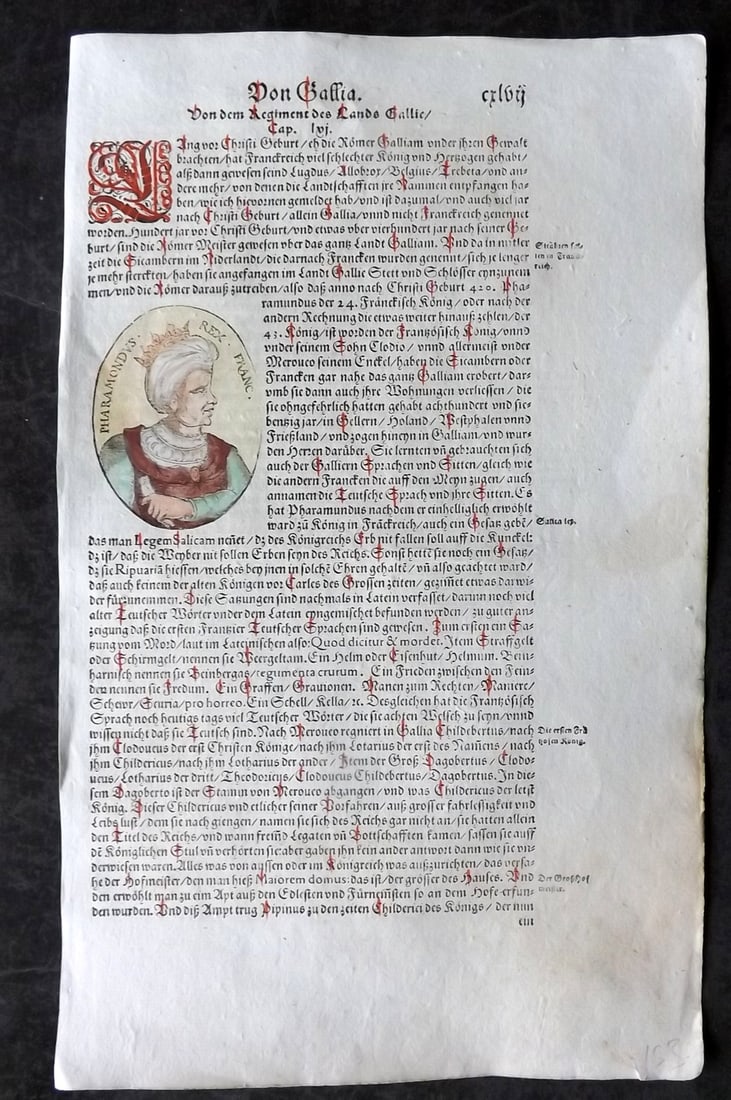 Von Gallia. cxlvij
Von dem Regiment des Lands Gallie/
Cap. lvj.
LAng vor Christi Geburt/ eh die Römer Galliam vnder jhren Gewalt
brachten/ hat Franckreich viel schlechter König vnd Hertzogen gehabt/
alß dann gewesen seind Lugdus/ Allobrox/ Belgius/ Trebeta/ vnd an-
dere mehr/ von denen die Landtschafften jre Nammen empfangen ha-
ben/ wie ich hievornen gemeldet hab/ vnd ist dazumal/ vnd auch viel jar
nach Christi Geburt/ allein Gallia/ vnnd nicht Franckreich genennet
worden. Hundert jar vor Christi Geburt/ vnd etwas vber vierhundert jar nach seiner Ge-
burt/ sind die Römer Meister gewesen vber das gantz Landt Galliam. Vnd da in mitler
zeit die Sicambern im Niderlandt/ die darnach Francken wurden genennt/ sich je lenger
je mehr sterckten/ haben sie angefangen im Landt Gallie Stett vnd Schlösser eynzunem
men/ vnd die Römer darauß zutreiben/ also daß anno nach Christi Geburt 420. Pha-
ramundus der 24. Fränckisch König/ oder nach der
andern Rechnung die etwas weiter hinauß zehlen/ der
43. König/ ist worden der Frantzösisch König/ vnnd
vnder seinem Sohn Clodio/ vnnd allermeist vnder
Meroueo seinem Enckel/ haben die Sicambern oder
Francken gar nahe das gantz Galliam erobert/ dar-
vmb sie dann auch ihre Wohnungen verliessen/ die
sie ohngefehrlich hatten gehabt achthundert vnd sie-
bentzig jar/ in Gellern/ Holand/ Westphalen vnnd
Frießland/ vnd zogen hineyn in Galliam/ vnd wur-
den Herren darüber. Sie lernten vñ gebrauchten sich
auch der Galliern Sprachen vnd Sitten/ gleich wie
die andern Francken die auff den Meyn zugen/ auch
annamen die Teutsche Sprach vnd jhre Sitten. Es
hat Pharamundus nachdem er einhelliglich erwöhlt
ward zu König in Frãckreich/ auch ein Gesatz gebẽ/
PHARAMONDVS. REX. FRANC.
das man Legem Salicam neñet/ dz des Königreichs Erb nit fallen soll auff die Kunckel:
dz ist/ daß die Weyber nit sollen Erben seyn des Reichs. Sonst hettẽ sie noch ein Gesatz/
dz sie Ripuariã hiessen/ welches bey jnen in solchẽ Ehren gehaltẽ/ vñ also geacht ward/
daß auch keinem der alten Königen vor Carles des Grossen zeiten/ gezimet etwas darwi-
der fürzunemmen. Diese Satzungen sind nachmals in Latein verfasset/ darinn noch viel
alter Teutscher Wörter vnder dem Latein eyngemischet befunden werden/ zu guter an-
zeigung daß die ersten Frantzier Teutscher Sprachen sind gewesen. Zum ersten ein Sa-
tzung vom Mord/ laut im Lateinischen also: Quod dicitur & mordet. Item Straffgelt
oder Schirmgelt/ nennen sie Weergeltam. Ein Helm oder Eisenhut/ Helmum. Bein-
harnisch nennen sie Beinbergas/ tegumenta crurum. Ein Frieden zwischen den Fein-
den nennen sie Fredum. Ein Graffen/ Grauionen. Manen zum Rechten/ Maniere/
Schewr/ Scuria/ pro horreo. Ein Schell/ Kella/ ꝛc. Desgleichen hat die Frantzösisch
Sprach noch heutigs tags viel Teutscher Wörter/ die sie achten Welsch zu seyn/ vnnd
wissen nicht daß sie Teutsch sind. Nach Meroueo regniert in Gallia Childebertus/ nach
jhm Clodoueus der erst Christen König/ nach jhm Lotarius der erst des Namens/ nach
jhm Childericus/ nach jhm Lotharius der ander/ Item der Groß Dagobertus/ Clodo-
ueus/ Lotharius der dritt/ Theodozicus/ Clodoueus Childebertus/ Dagobertus. In die-
sem Dagoberto ist der Stamm von Meroueo abgangen/ vnd was Childericus der letst
König. Dieser Childericus vnd etlicher seiner Vorfahren/ auß grosser fahrlessigkeit vnd
Leibs lust/ dem sie nach giengen/ namen sie sich des Reichs gar nicht an/ sie hatten allein
den Titel des Reichs/ vnd wann frembd Legaten vñ Bottschafften kamen/ sassen sie auff
dẽ Königlichen Stul vñ verhörten sie aber gaben jhn kein ander antwort dann wie sie vn-
derwiesen waren. Alles was von aussen oder im Königreich was außzurichten/ das versa-
he der Hofmeister/ den man hieß Maiorem domus: das ist/ der grösser des Hauses. Vnd
den erwöhlt man zu eim Apt auß den Edlesten vnd Fürnemsten so an dem Hofe erfun-
den wurden. Vnd diß Ampt trug Pipinus zu den zeiten Childerici des Königs/ der nun
ein
Salica lex.
Die ersten Frã
tzosen König.
Der Großhof
meister.